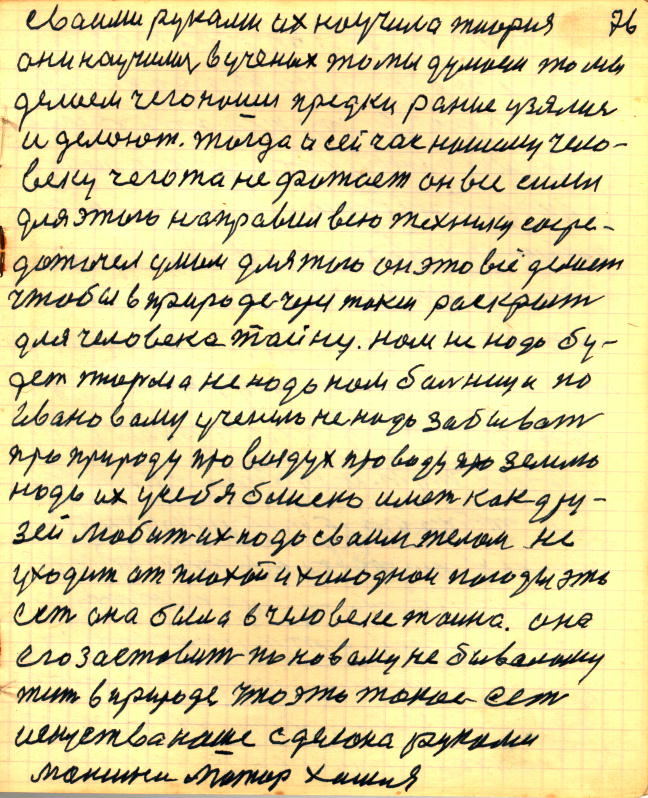 своими руками их научила теория 76
они научились в учених то мы думаем то мы
делаем чего наши предки ранше узялися
и делают. тогда и сейчас нашему чело-
веку чегота не фатает он все силы
для этого направил всю технику сосре-
доточел умом для того он это всё делает
чтобы в природе через токи раскрыт
для человека тайну. нам не надо бу-
дет тюрма не надо нам болница по
Ивановому учению не надо забыват
про природу про воздух про воду про землю
надо их у себя близко имет как дру-
зей любит их надо своим телом не
уходит от плохой и холодной погоды это
ест она была в человеке тайна. она
его заставит по новому не бывалому
жит в природе что это такое ест
искуства наше сделана руками
машины мотор химия